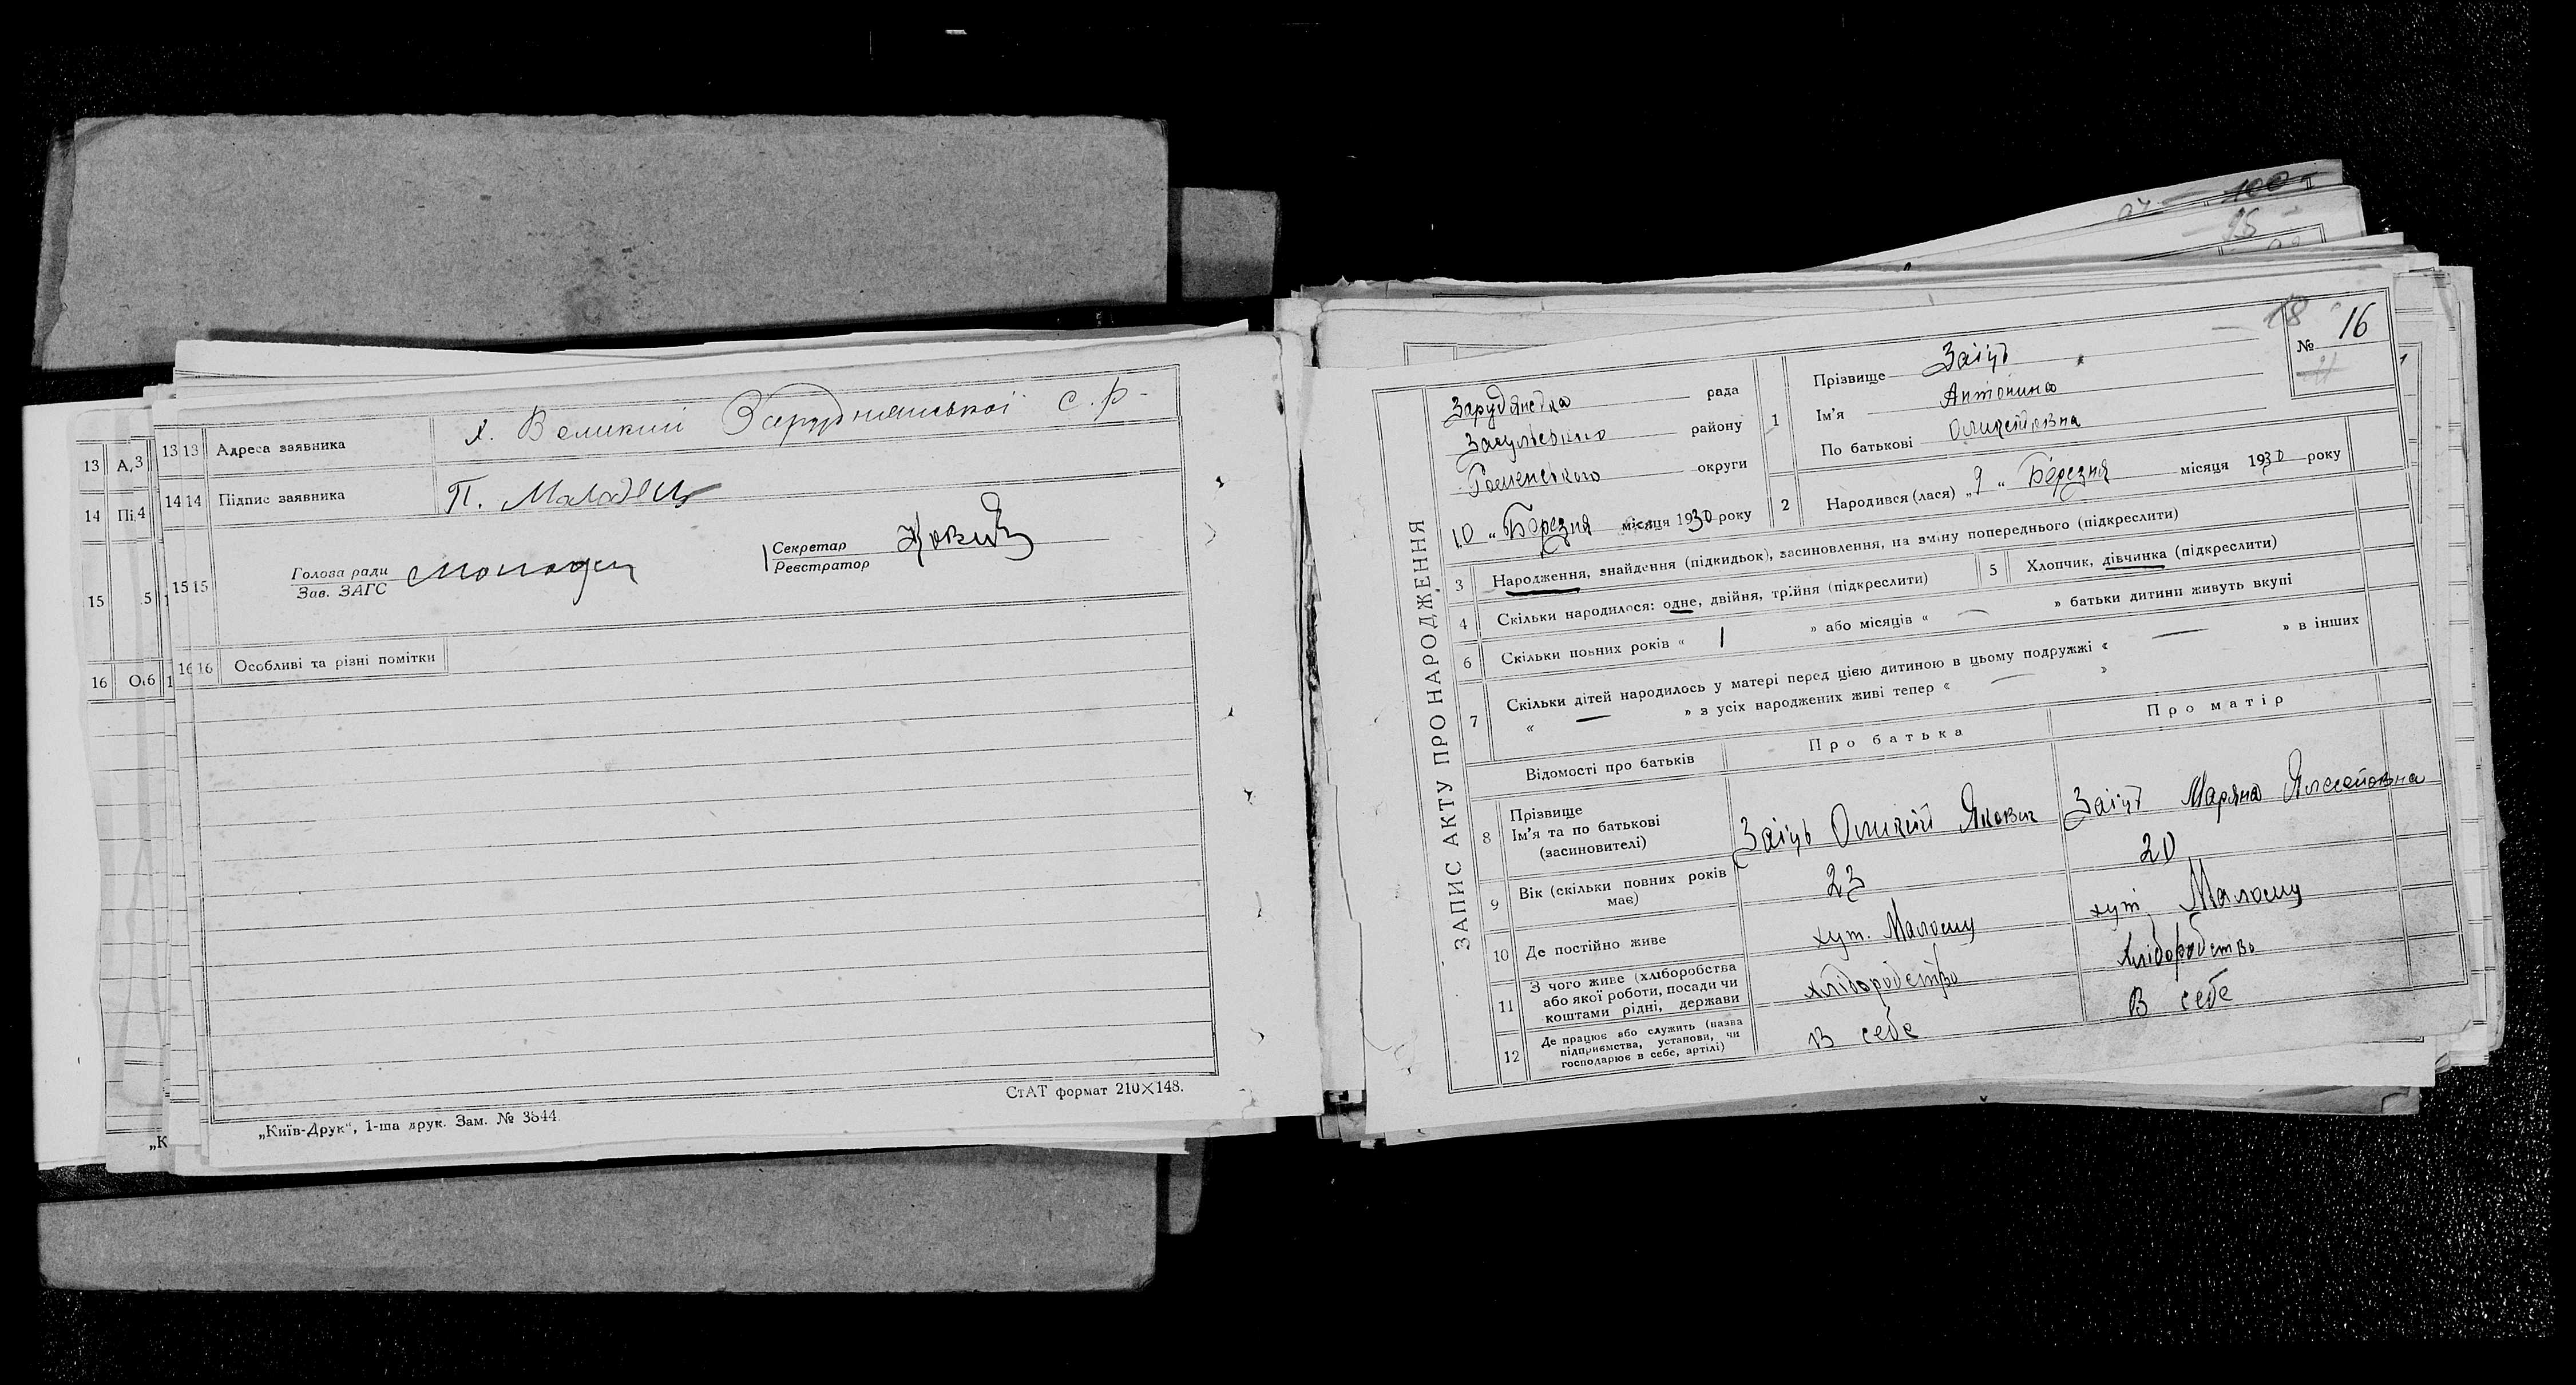 13 Адреса заявника х. Великий Заруднянської с.р.
14 Підпис заявника П. Малодец
15 Голова ради
Зав. ЗАГС
Секретар
Реєстратор
16 Особливі та різні помітки
„Київ-Друк“, 1-ша друк. Зам. № 3844.
СтАТ формат 210×148.
100
18
№ 16
ЗАПИС АКТУ ПРО НАРОДЖЕННЯ
Зарудянська рада
району
Роменського округи
10 „ Березня місяця 1930 року
1 Прізвище Заіць
Ім'я Антонина
По батькові
2 Народився (лася) „ 9 „ Березня місяця 1930 року
3 Народження, знайдення (підкидьок), засиновлення, на зміну попереднього (підкреслити)
4 Скільки народилося: одне, двійня, трійня (підкреслити)
5 Хлопчик, дівчинка (підкреслити)
6 Скільки повних років « 1 » або місяців « — » батьки дитини живуть вкупі
7 Скільки дітей народилось у матері перед цією дитиною в цьому подружжі « — » в інших
« — » з усіх народжених живі тепер « — »
Відомості про батьків Про батька Про матір
8 Прізвище
Ім'я та по батькові
(засновителі)
Заіць Якович
Заіць Маряна
9 Вік (скільки повних років має) 23 20
10 Де постійно живе хут. хут.
11 З чого живе (хліборобства
або якої роботи, посади чи
коштами рідні, держави
хліборобство хліборобство
12 Де працює або служить (назва
підприємства, установи, чи
господарює в себе, артілі)
В себе В себе